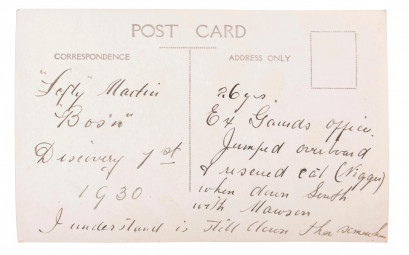 POST CARD
CORRESPONDENCE
ADDRESS ONLY
"Lefty" Martin
"Bos'n"
Discovery 1st
1930
26 yrs.
Ex Guards officer.
Jumped overboard
& rescued cat (Nigger)
when down South
with Mawson
I understand is still down